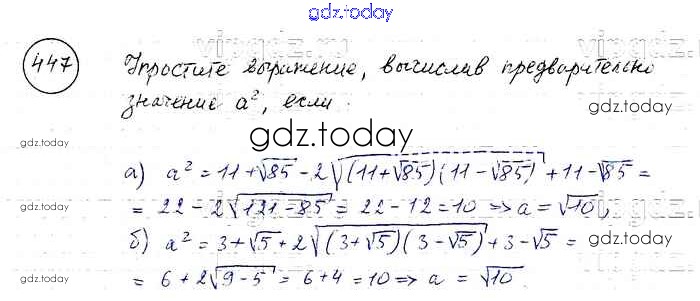 gdz.today
447 Упростите выражение, вычислив предварительно
значение a², если:
gdz.today
gdz.today
gdz.today
а) a² = 11 + √85 - 2√(11 + √85)(11 - √85) + 11 - √85 =
= 22 - 2√121 - 85 = 22 - 12 = 10 => a = √10,
б) a² = 3 + √5 + 2√(3 + √5)(3 - √5) + 3 - √5 =
= 6 + 2√9 - 5 = 6 + 4 = 10 => a = √10
gdz.today
gdz.today
gdz.today